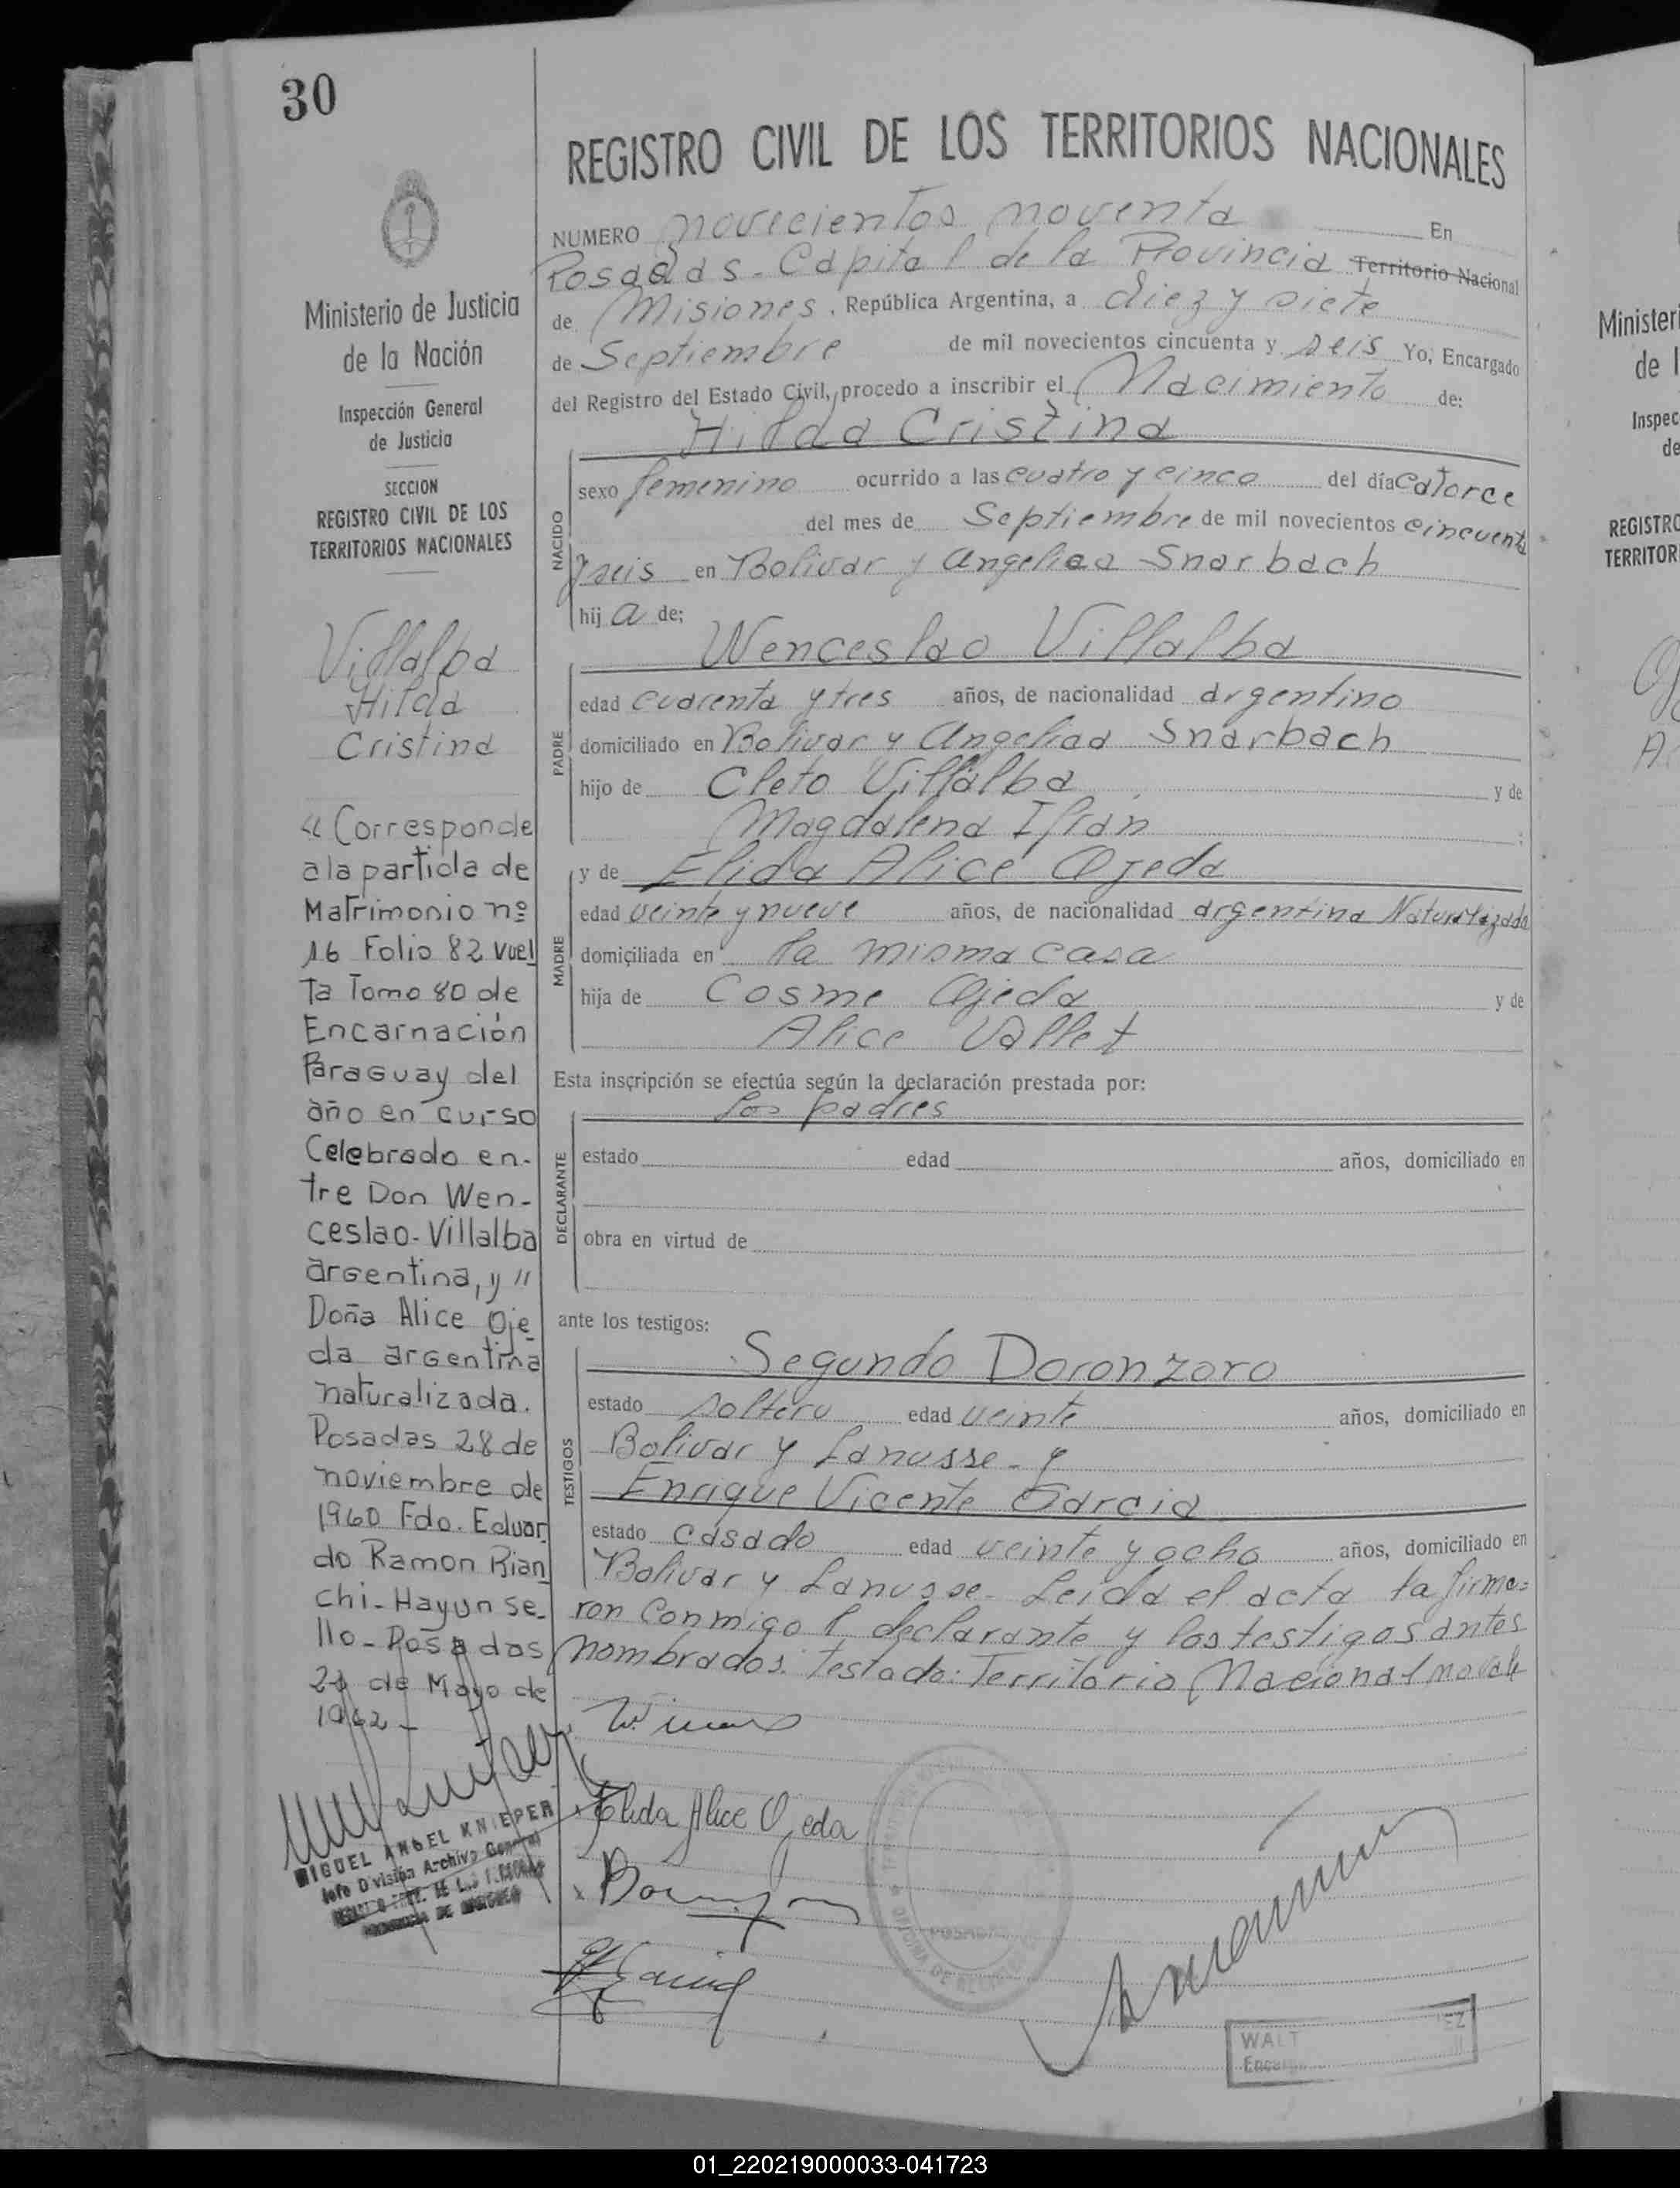 30
REGISTRO CIVIL DE LOS TERRITORIOS NACIONALES
Ministerio de Justicia
de la Nación
Inspección General
de Justicia
SECCION
REGISTRO CIVIL DE LOS
TERRITORIOS NACIONALES
Villalba
Hilda
Cristina
"Corresponde
a la partida de
Matrimonio nº
16 Folio 82 vuel
ta Tomo 80 de
Encarnación
Paraguay del
año en curso
Celebrado en-
tre Don Wen-
ceslao-Villalba
argentina, y "
Doña Alice Oje
da argentina
naturalizada.
Posadas 28 de
noviembre de
1960 Fdo. Eduar
do Ramon Bian
chi-Hayun se-
llo-Posadas
de Mayo de
1962-
MIGUEL ANGEL KNIEPER
Jefe División Archivo General
NUMERO novecientos noventa En
Posadas-Capital de la Provincia Territorio Nacional
de Misiones, República Argentina, a diez y siete
de Septiembre de mil novecientos cincuenta y seis Yo, Encargado
del Registro del Estado Civil, procedo a inscribir el Nacimiento de:
Hilda Cristina
NACIDO
sexo femenino ocurrido a las cuatro y cinco del día catorce
del mes de Septiembre de mil novecientos cincuenta
y seis en Bolivar y Angelica Snarbach
hija de;
Wenceslao Villalba
PADRE
edad cuarenta y tres años, de nacionalidad argentino
domiciliado en Bolivar y Angelica Snarbach
hijo de Cleto Villalba y de
Magdalena Ifran
y de Elida Alice Ojeda
MADRE
edad veinte y nueve años, de nacionalidad argentina Naturalizada
domiciliada en la misma casa
hija de Cosme Ojeda y de
Alice Vallet
Esta inscripción se efectúa según la declaración prestada por:
los padres
DECLARANTE
estado edad años, domiciliado en
obra en virtud de
ante los testigos:
Segundo Doronzoro
TESTIGOS
estado soltero edad veinte años, domiciliado en
Bolivar y Lanusse-y
Enrique Vicente Garcia
estado casado edad veinte y ocho años, domiciliado en
Bolivar y Lanusse-Leida el acta la firma-
ron conmigo l declarante y los testigos antes
nombrados. Testado: Territorio Nacional no vale
Elida Alice Ojeda
POSADAS
WALT EZ
01_220219000033-041723